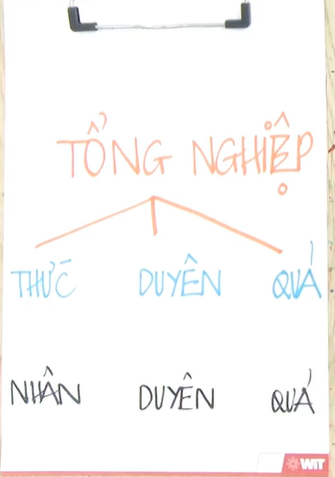 TỔNG NGHIỆP
THỨC DUYÊN QUẢ
NHÂN DUYÊN QUẢ
WIT